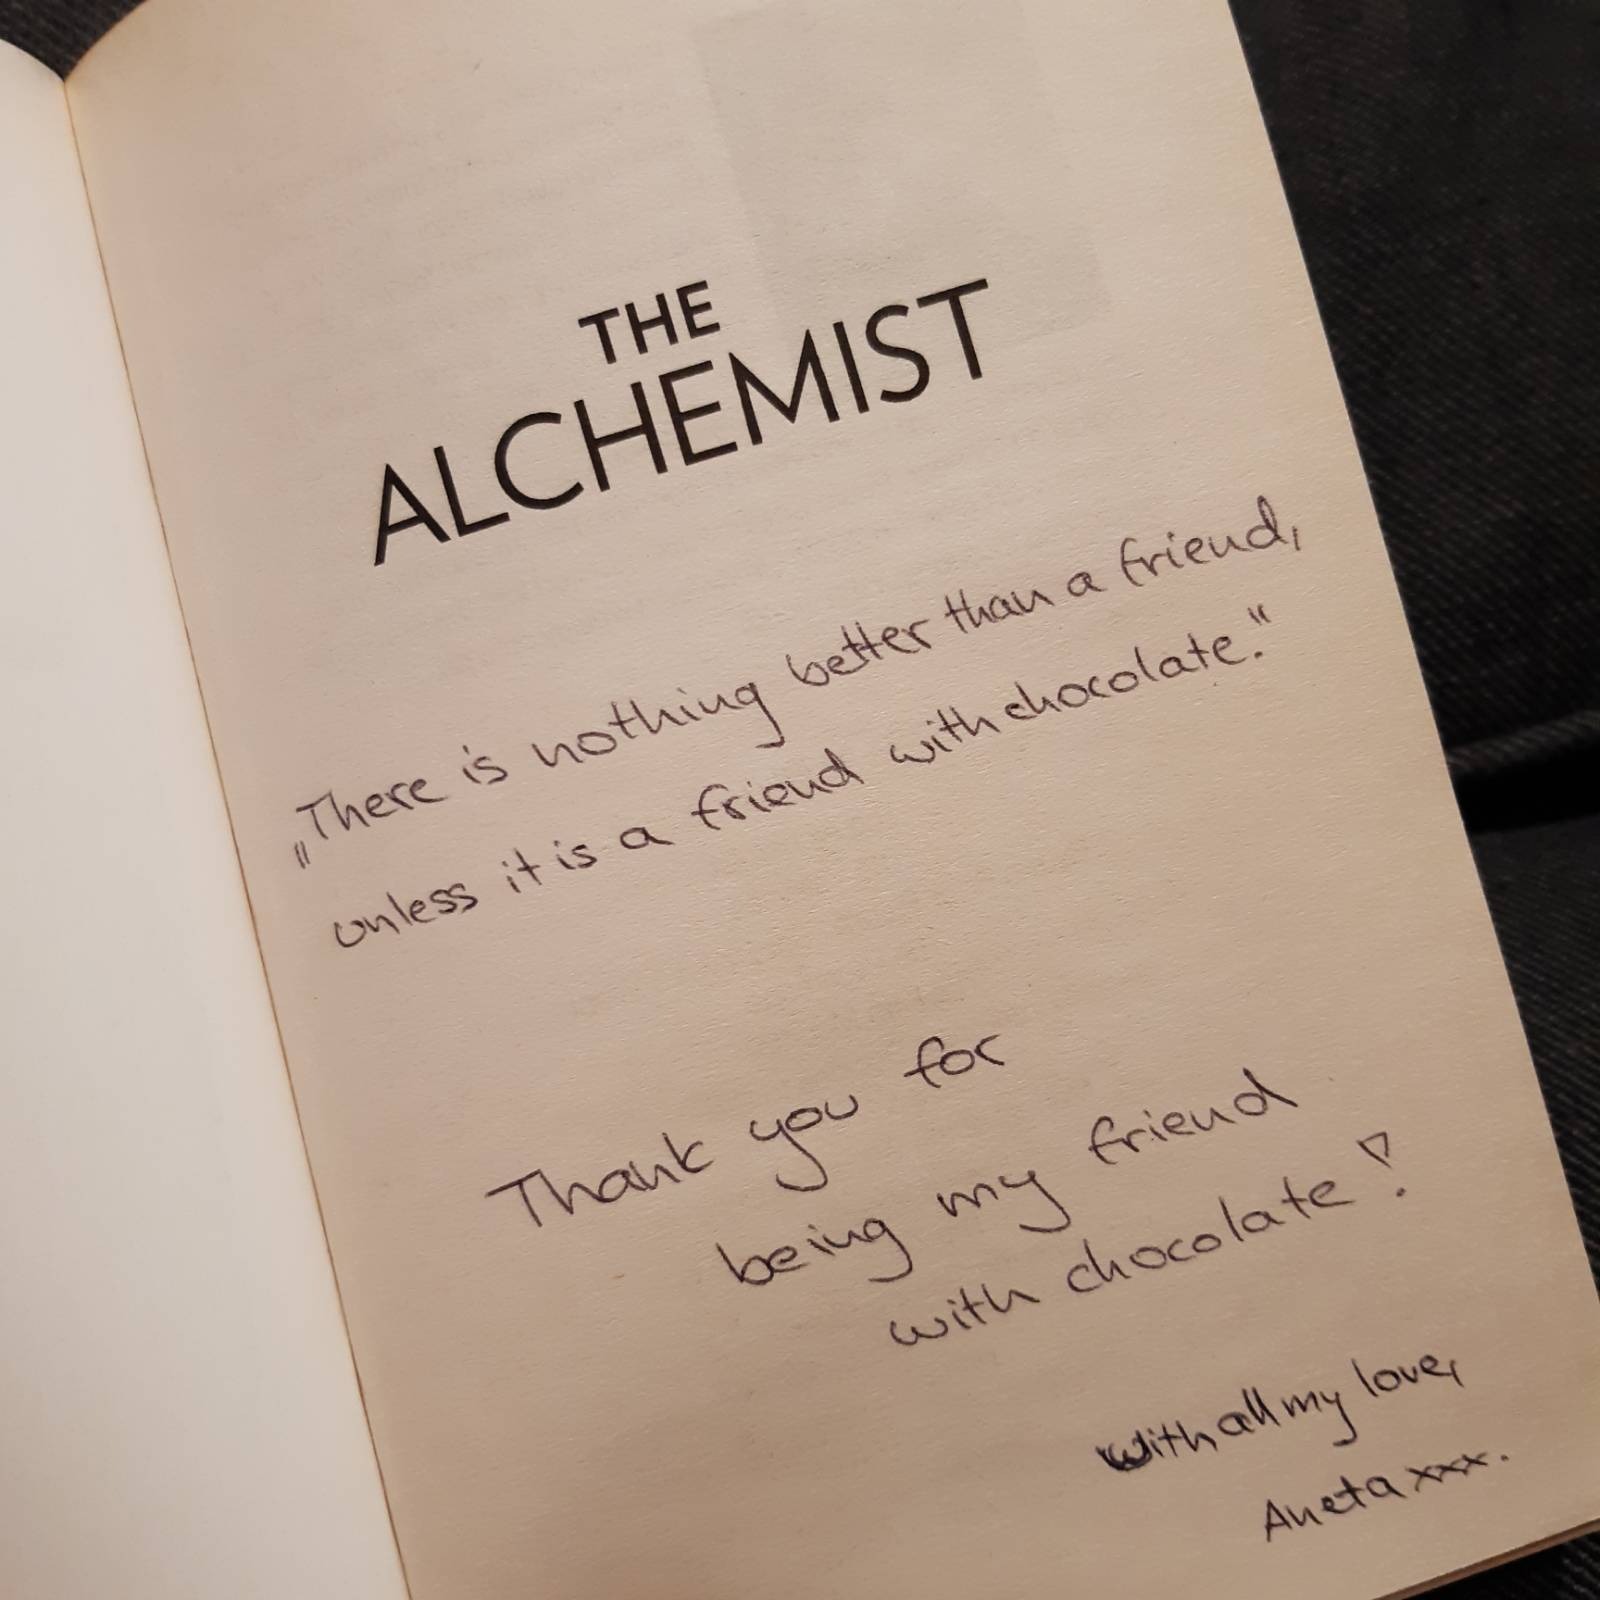 THE
ALCHEMIST
„There is nothing better than a friend,
unless it is a friend with chocolate.“
Thank you for
being my friend
with chocolate!
With all my love,
Aneta xxx.